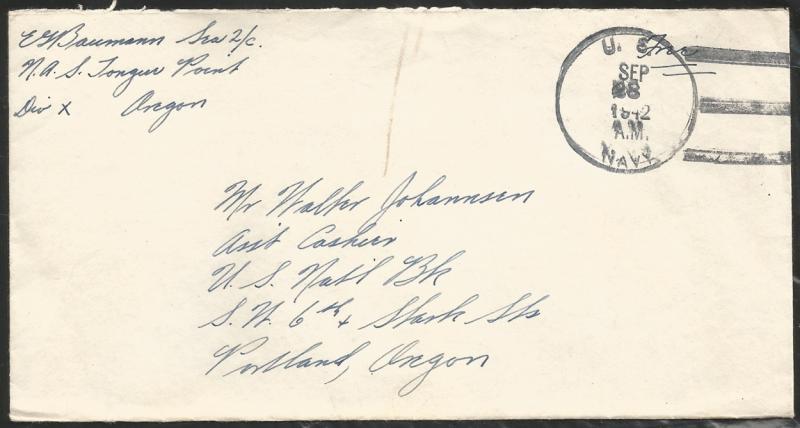 E G Baumann Sea 2/c.
N.A.S. Tongue Point
Div X Oregon
Free
U. S.
SEP
28
1942
A.M.
NAVY
Mr Walter Johannsen
Asst Cashier
U. S. Nat'l Bk
S.W. 6th + Stark Sts
Portland, Oregon